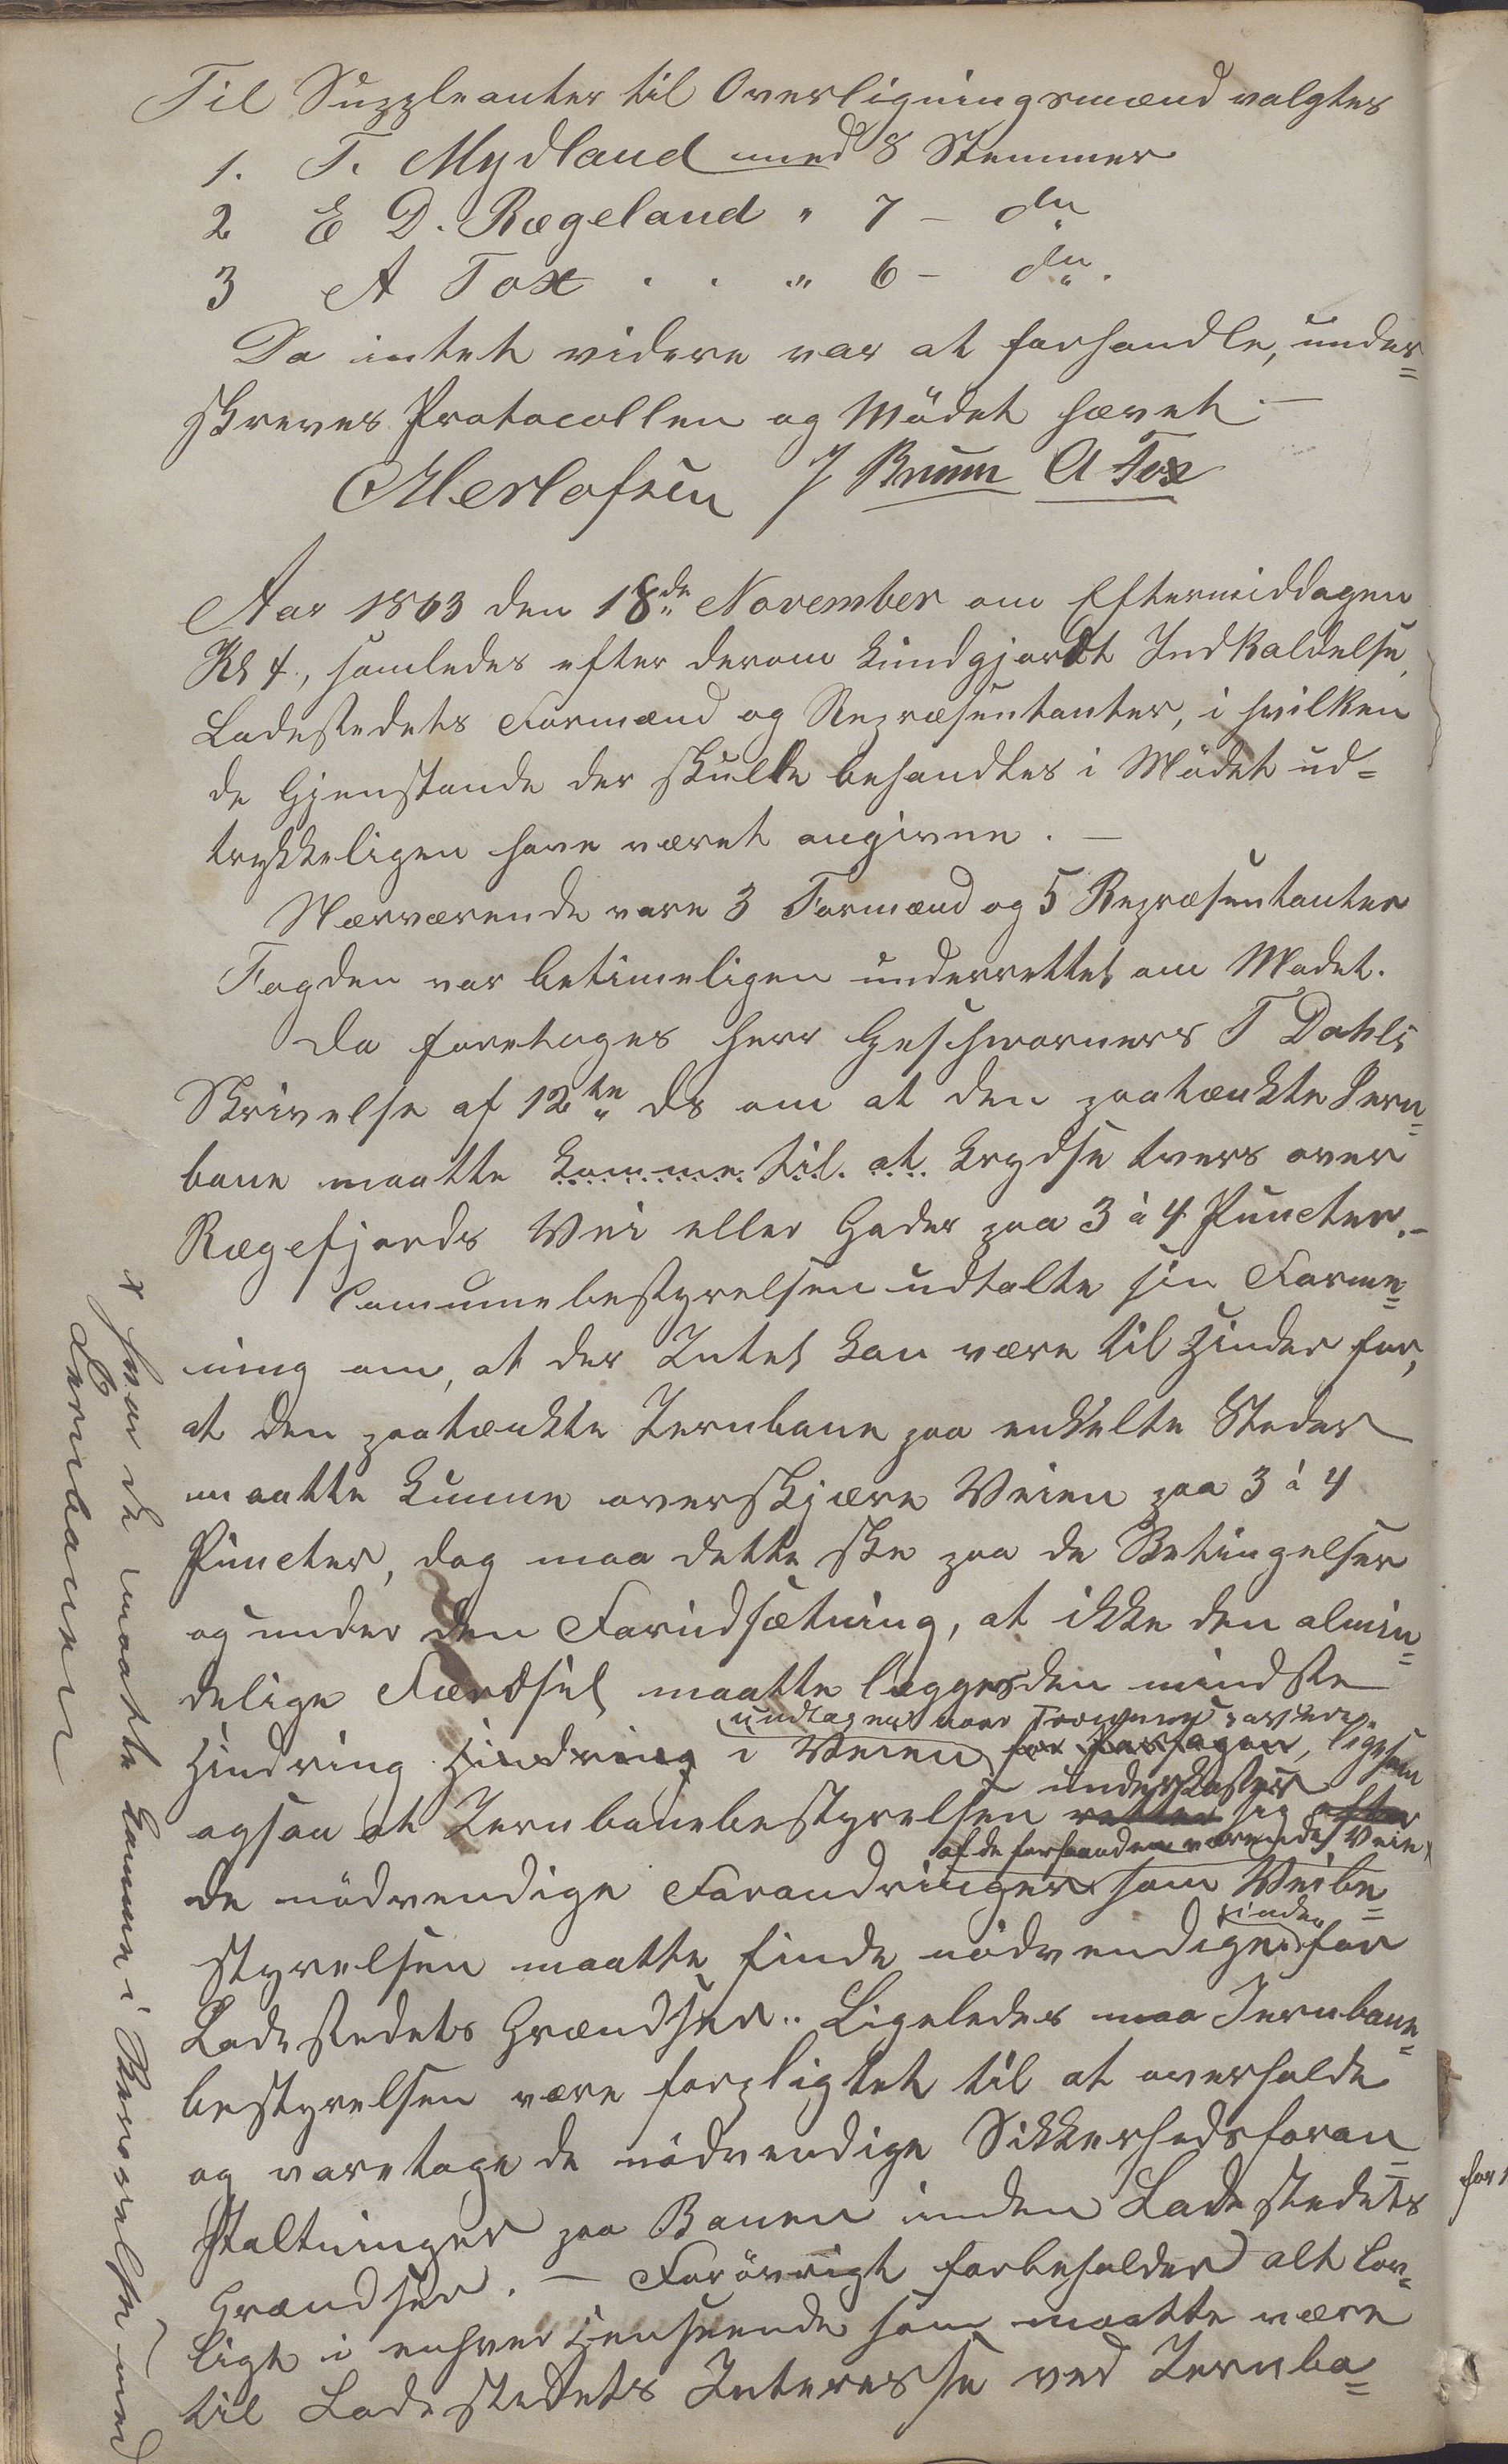 Til Suppleanter til Overligningsmænd valgtes
1. T. Mydland med 8 Stemmer
2 E D. Rægeland " 7 - do
3 A Tox . . " 6 - do.
Da intet videre var at forhandle, under=
skreves Protocollen og Mödet hævet. —
J Bruun A Tox
Aar 1863 den 18de November om Eftermiddagen
Kl 4., samledes efter derom kundgjordt Indkaldelse,
Ladestedets Formænd og Repræsentanter, i hvilken
de Gjenstande der skulle behandles i Mödet ud=
trykkeligen have været angivne. —
Nærværende vare 3 Formænd og 5 Repræsentanter
Fogden var betimeligen underrettet om Mödet.
Da foretoges Herr Geschworners T Dahls
Skrivelse af 12te ds om at den paatænkte Jern=
bane maatte komme til at krydse tvers over
Rægefjords Vei eller Gader paa 3 à 4 Puncter. -
Communebestyrelsen udtalte sin Forme=
ning om, at der Intet kan være til Hinder for,
at den paatænkte Jernbane paa enkelte Steder
maatte kunne overskjære Veien paa 3 à 4
Puncter, dog maa dette ske paa de Betingelser
og under den Forudsætning, at ikke den almin=
delige Færdsel maatte lægges den mindste
undtagen naar
Hindring Hindring i Veien for Passagen, ligesom
underkaster
ogsaa at Jernbanebestyrelsen retter sig efter
af de forhaanden værende Veie x
de nödvendige Forandringer som Veibe=
inden
styrelsen maatte finde nödvendige for
Ladestedets Grændser.. Ligeledes maa Jernbane=
bestyrelsen være forpligtet til at overholde
og varetage de nödvendige Sikkerhedsforan=
staltninger paa Banen inden Ladestedets
Grændser. — Forövrigt forbeholder alt Lov=
ligt i enhver Henseende som maatte være
til Ladestedets Interesse ved Jernba=
x hvor de maatte komme i Berörelse med
Jernbanen
for